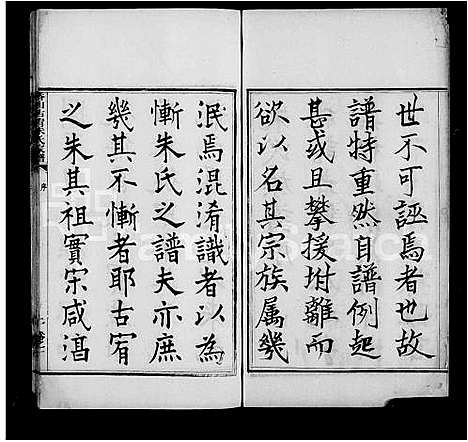 世不可誣焉者也故
譜特重然自譜例起
甚或且攀援坿離而
欲以名其宗族属幾
泯焉混淆識者以為
慚朱氏之譜夫亦庶
幾其不慚者耶古宥
之朱其祖實宋咸淐
序